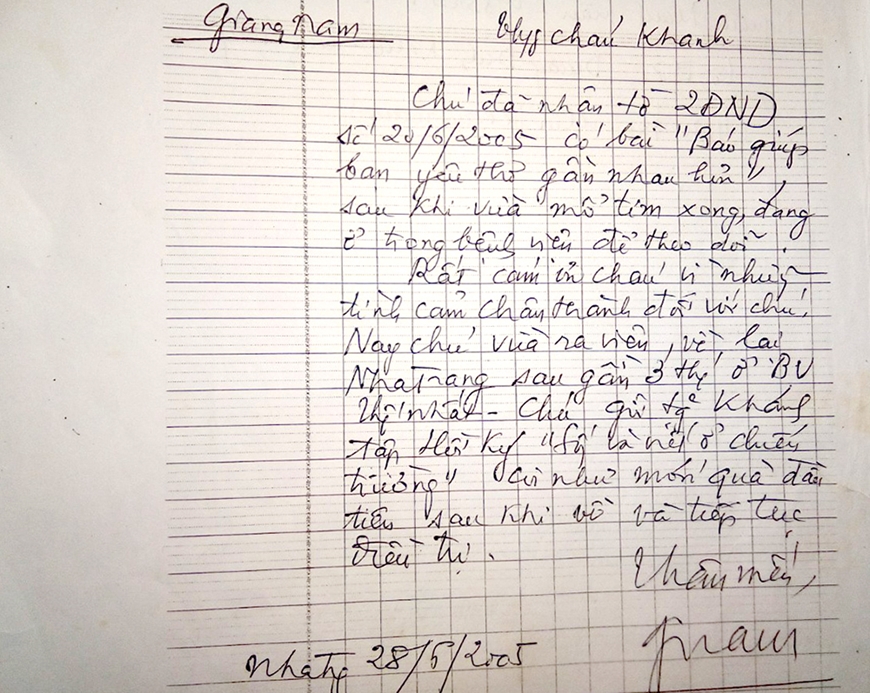 Giang Nam
cháu Khanh
Chú đã nhận tờ QĐND
số 20/6/2005 có bài "Báo giúp
bạn yêu thơ gần nhau hơn",
sau khi vừa mổ tim xong, đang
ở trong bệnh viện để theo dõi.
Rất cảm ơn cháu vì những
tình cảm chân thành đối với chú.
Nay chú vừa ra viện, về lại
Nha Trang sau gần 3 thg ở BV
Thg nhất - Chú gửi tg
tập Hồi ký "Sống và viết ở chiến
trường" coi như món quà đầu
tiên sau khi về và tiếp tục
điều trị.
Thân mến,
Nhatg 28/6/2005